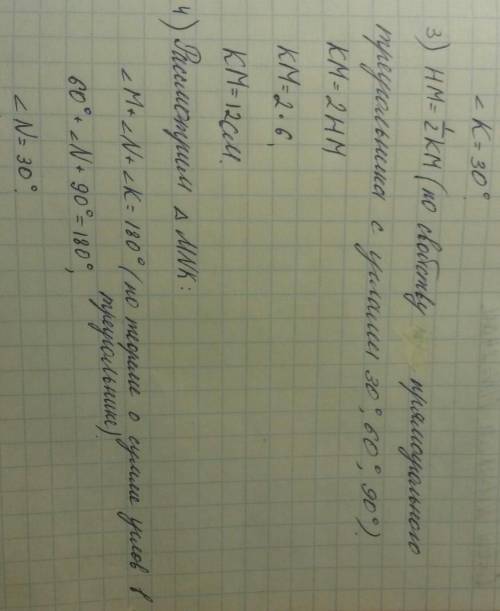 ∠K = 30°
3) HM = ½ KM (по свойству прямоугольного
треугольника с углами 30°, 60°, 90°).
KM = 2HM
KM = 2·6,
KM = 12см.
4) Рассмотрим ΔMNK:
∠M + ∠N + ∠K = 180° (по теореме о сумме углов в
треугольнике).
60° + ∠N + 90° = 180°,
∠N = 30°.